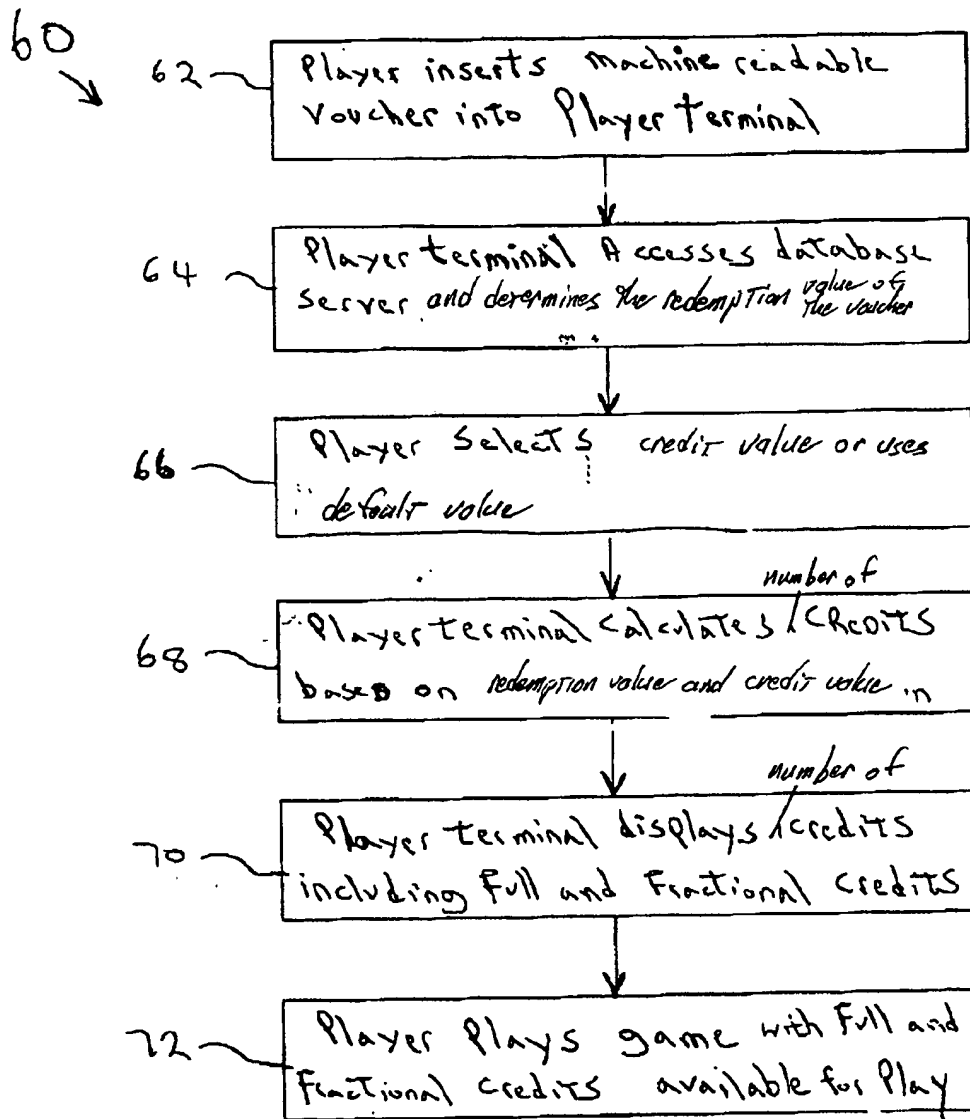 60
62
Player inserts machine readable
voucher into Player terminal
64
Player terminal Accesses database
server and determines the redemption value of
the voucher
66
Player Selects credit value or uses
default value
68
number of
Player terminal Calculates CREDITS
based on redemption value and credit value
70
number of
Player terminal displays credits
including Full and Fractional Credits
72
Player Plays game with Full and
Fractional Credits available for Play